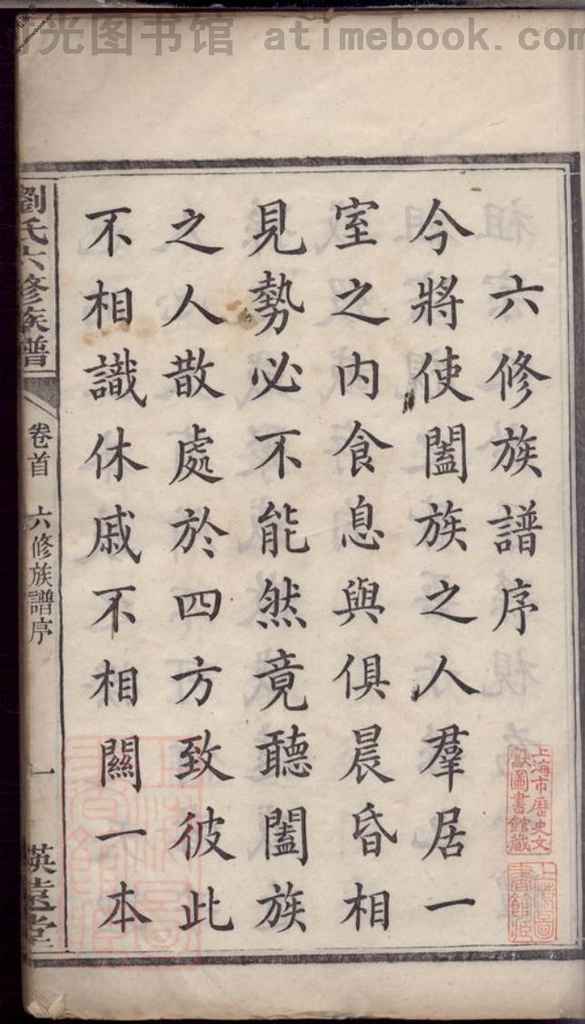 时光图书馆 atimebook.com
六修族譜序
今將使闔族之人羣居一
室之内食息與俱晨昏相
見勢必不能然竟聽闔族
之人散處於四方致彼此
不相識休戚不相關一本
劉氏六修族譜
卷首 六修族譜序
一
瑛遠堂
上海市歷史文
獻圖書館藏
上海圖
書館藏